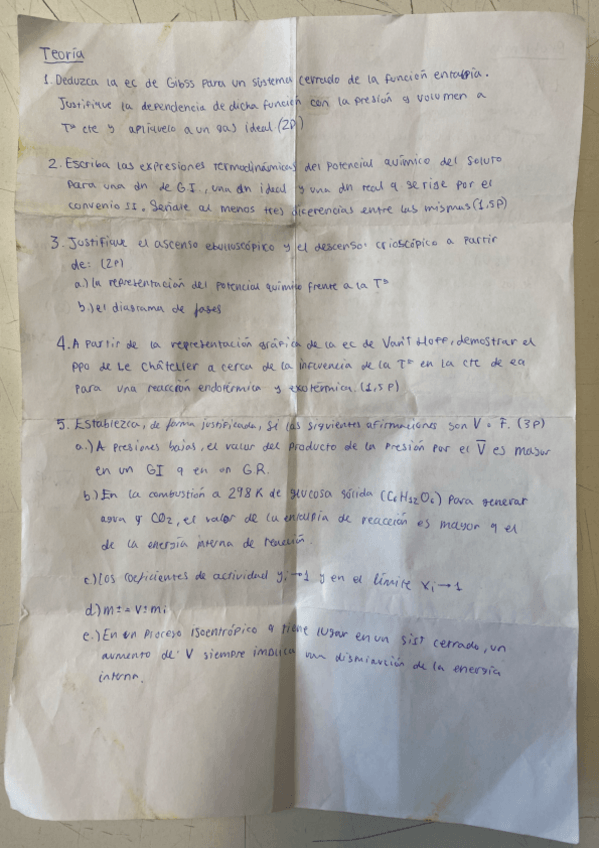 Teoría
1. Deduzca la ec de Gibss para un sistema cerrado de la función entalpia.
Justifique la dependencia de dicha función con la presión y volumen a
Tª cte y apliquelo a un gas ideal (2p)
2. Escriba las expresiones termodinámicas del potencial químico del soluto
para una dn de GI, una dn ideal y una dn real q se rige por el
convenio II. Señale al menos tres diferencias entre las mismas (1,5p)
3. Justifique el ascenso ebulloscópico y el descenso crioscópico a partir
de: (2p)
a.) la representación del potencial químico frente a la Tª
b.) el diagrama de fases
4. A partir de la representación gráfica de la ec de Van't Hoff, demostrar el
ppo de Le Châtelier a cerca de la influencia de la Tª en la cte de eq
para una reacción endotérmica y exotérmica. (1,5p)
5. Establezca, de forma justificada, si las siguientes afirmaciones son V o F. (3p)
a.) A presiones bajas, el valor del producto de la presión por el V̅ es mayor
en un GI q en un GR.
b.) En la combustión a 298K de glucosa sólida (C6H12O6) para generar
agua y CO2, el valor de la entalpia de reacción es mayor q el
de la energía interna de reacción.
c.) Los coeficientes de actividad γi→1 y en el límite xi→1
d.) m± = ν± mi
e.) En un proceso isoentrópico q tiene lugar en un sist cerrado, un
aumento de V siempre implica una disminución de la energía
interna.